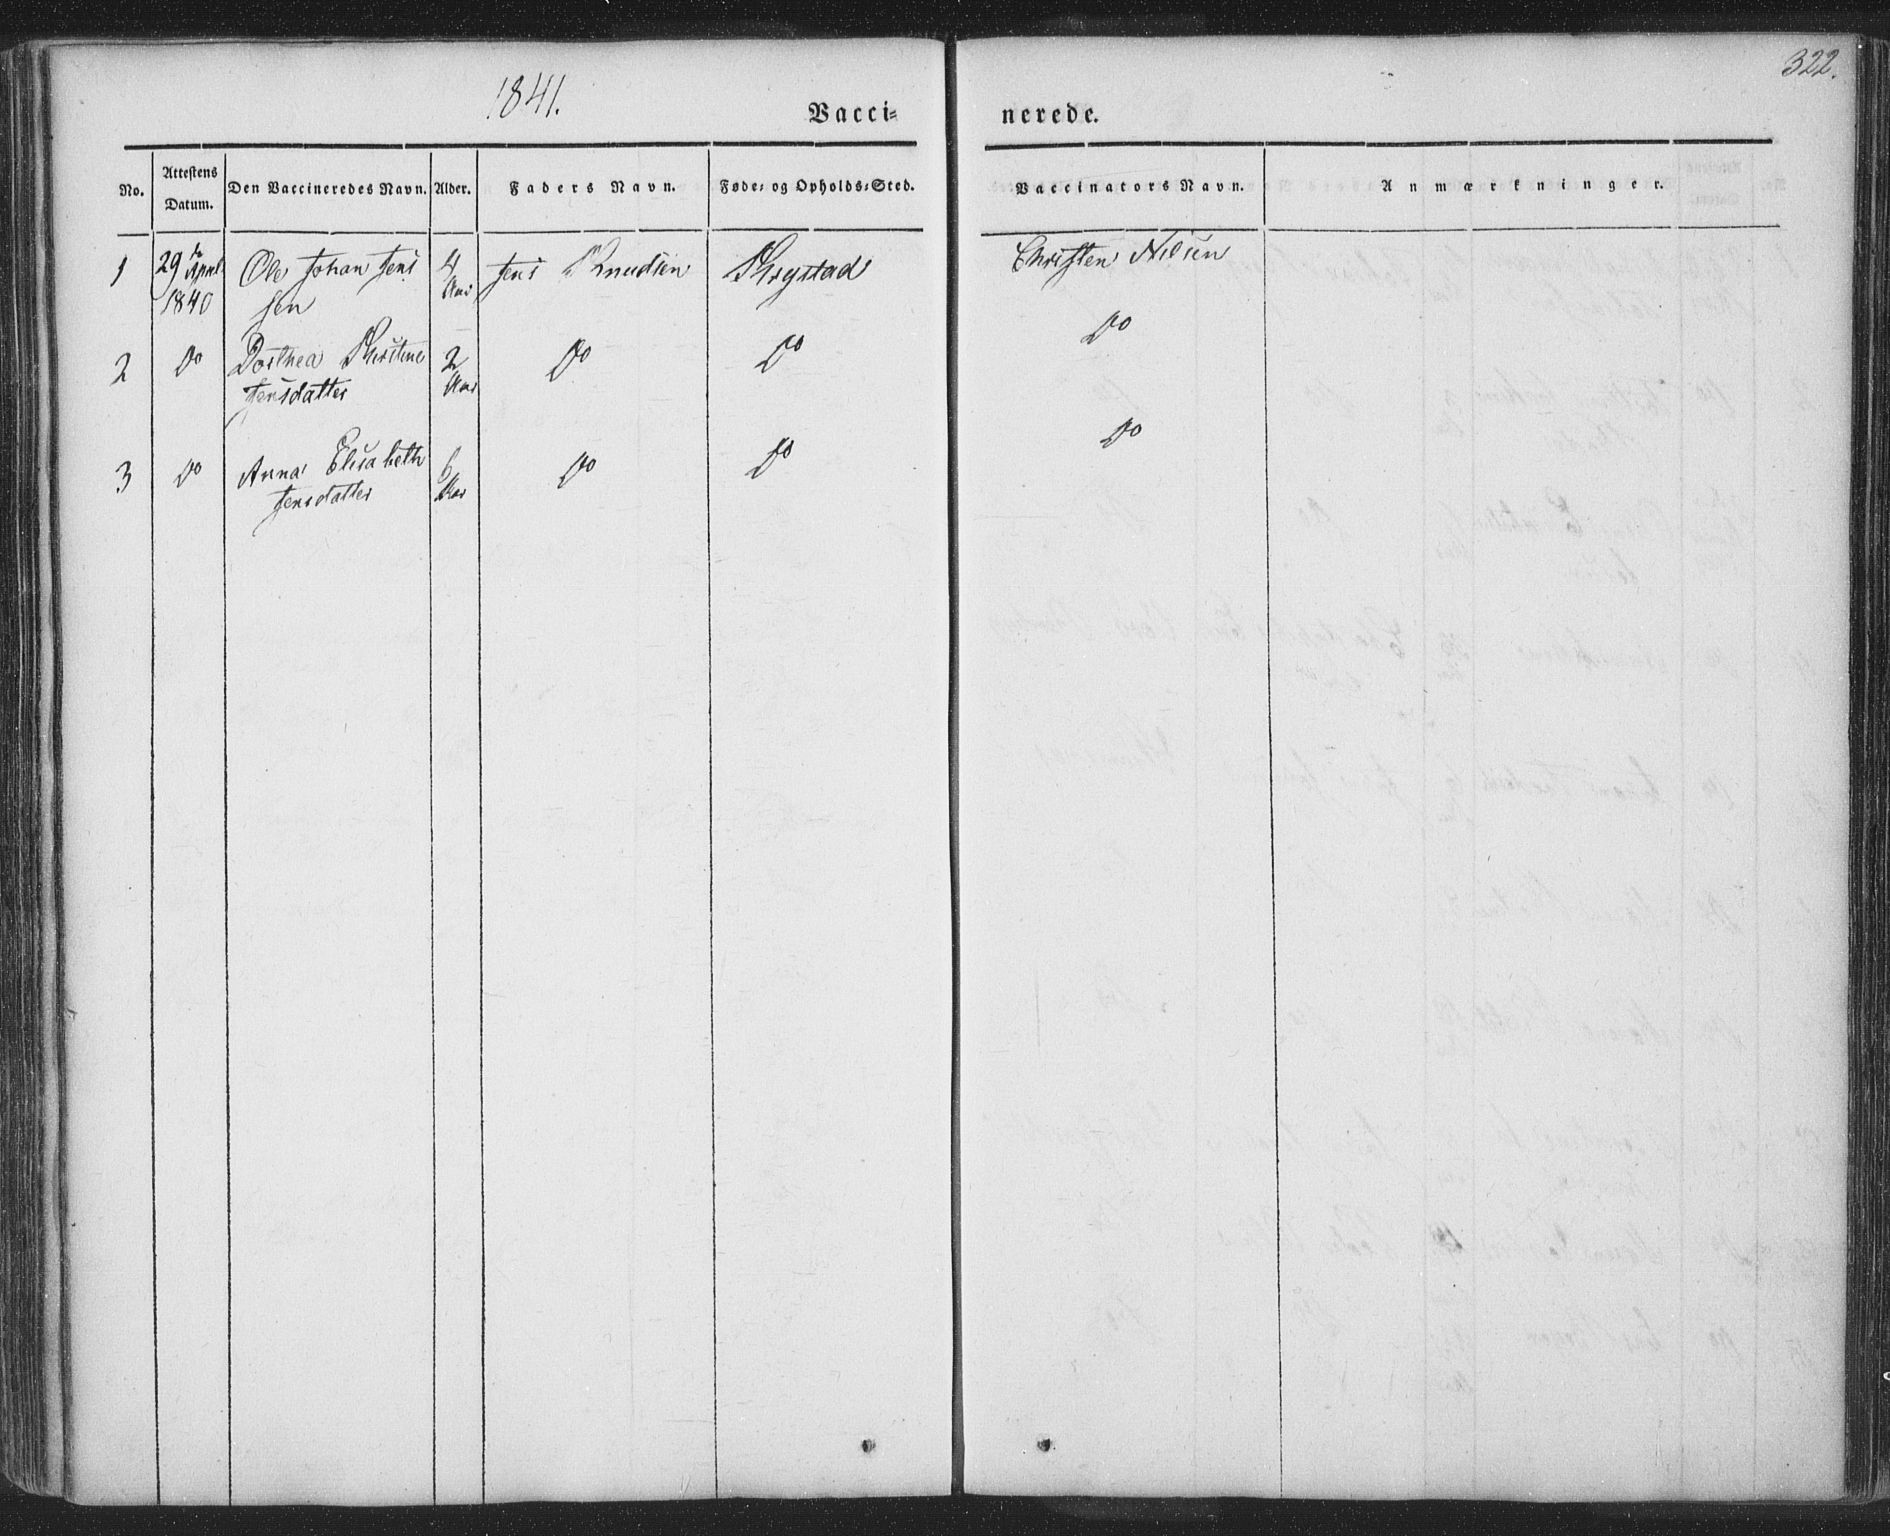 322.
1841.
Vacci= nerede.
No. Attestens Datum. Den Vaccineredes Navn. Alder. Faders Navn. Føde= og Opholds=Sted. Vaccinators Navn. Anmærkninger.
1 29 April Ole Johan Jens 4 Jens Knudsen Christen Nilsen
1840 sen Aar
2 Do Dorthea 2 Do Do Do
Jensdatter Aar
3 Do Anna Elisabeth 6 Do Do Do
Jensdatter Aar